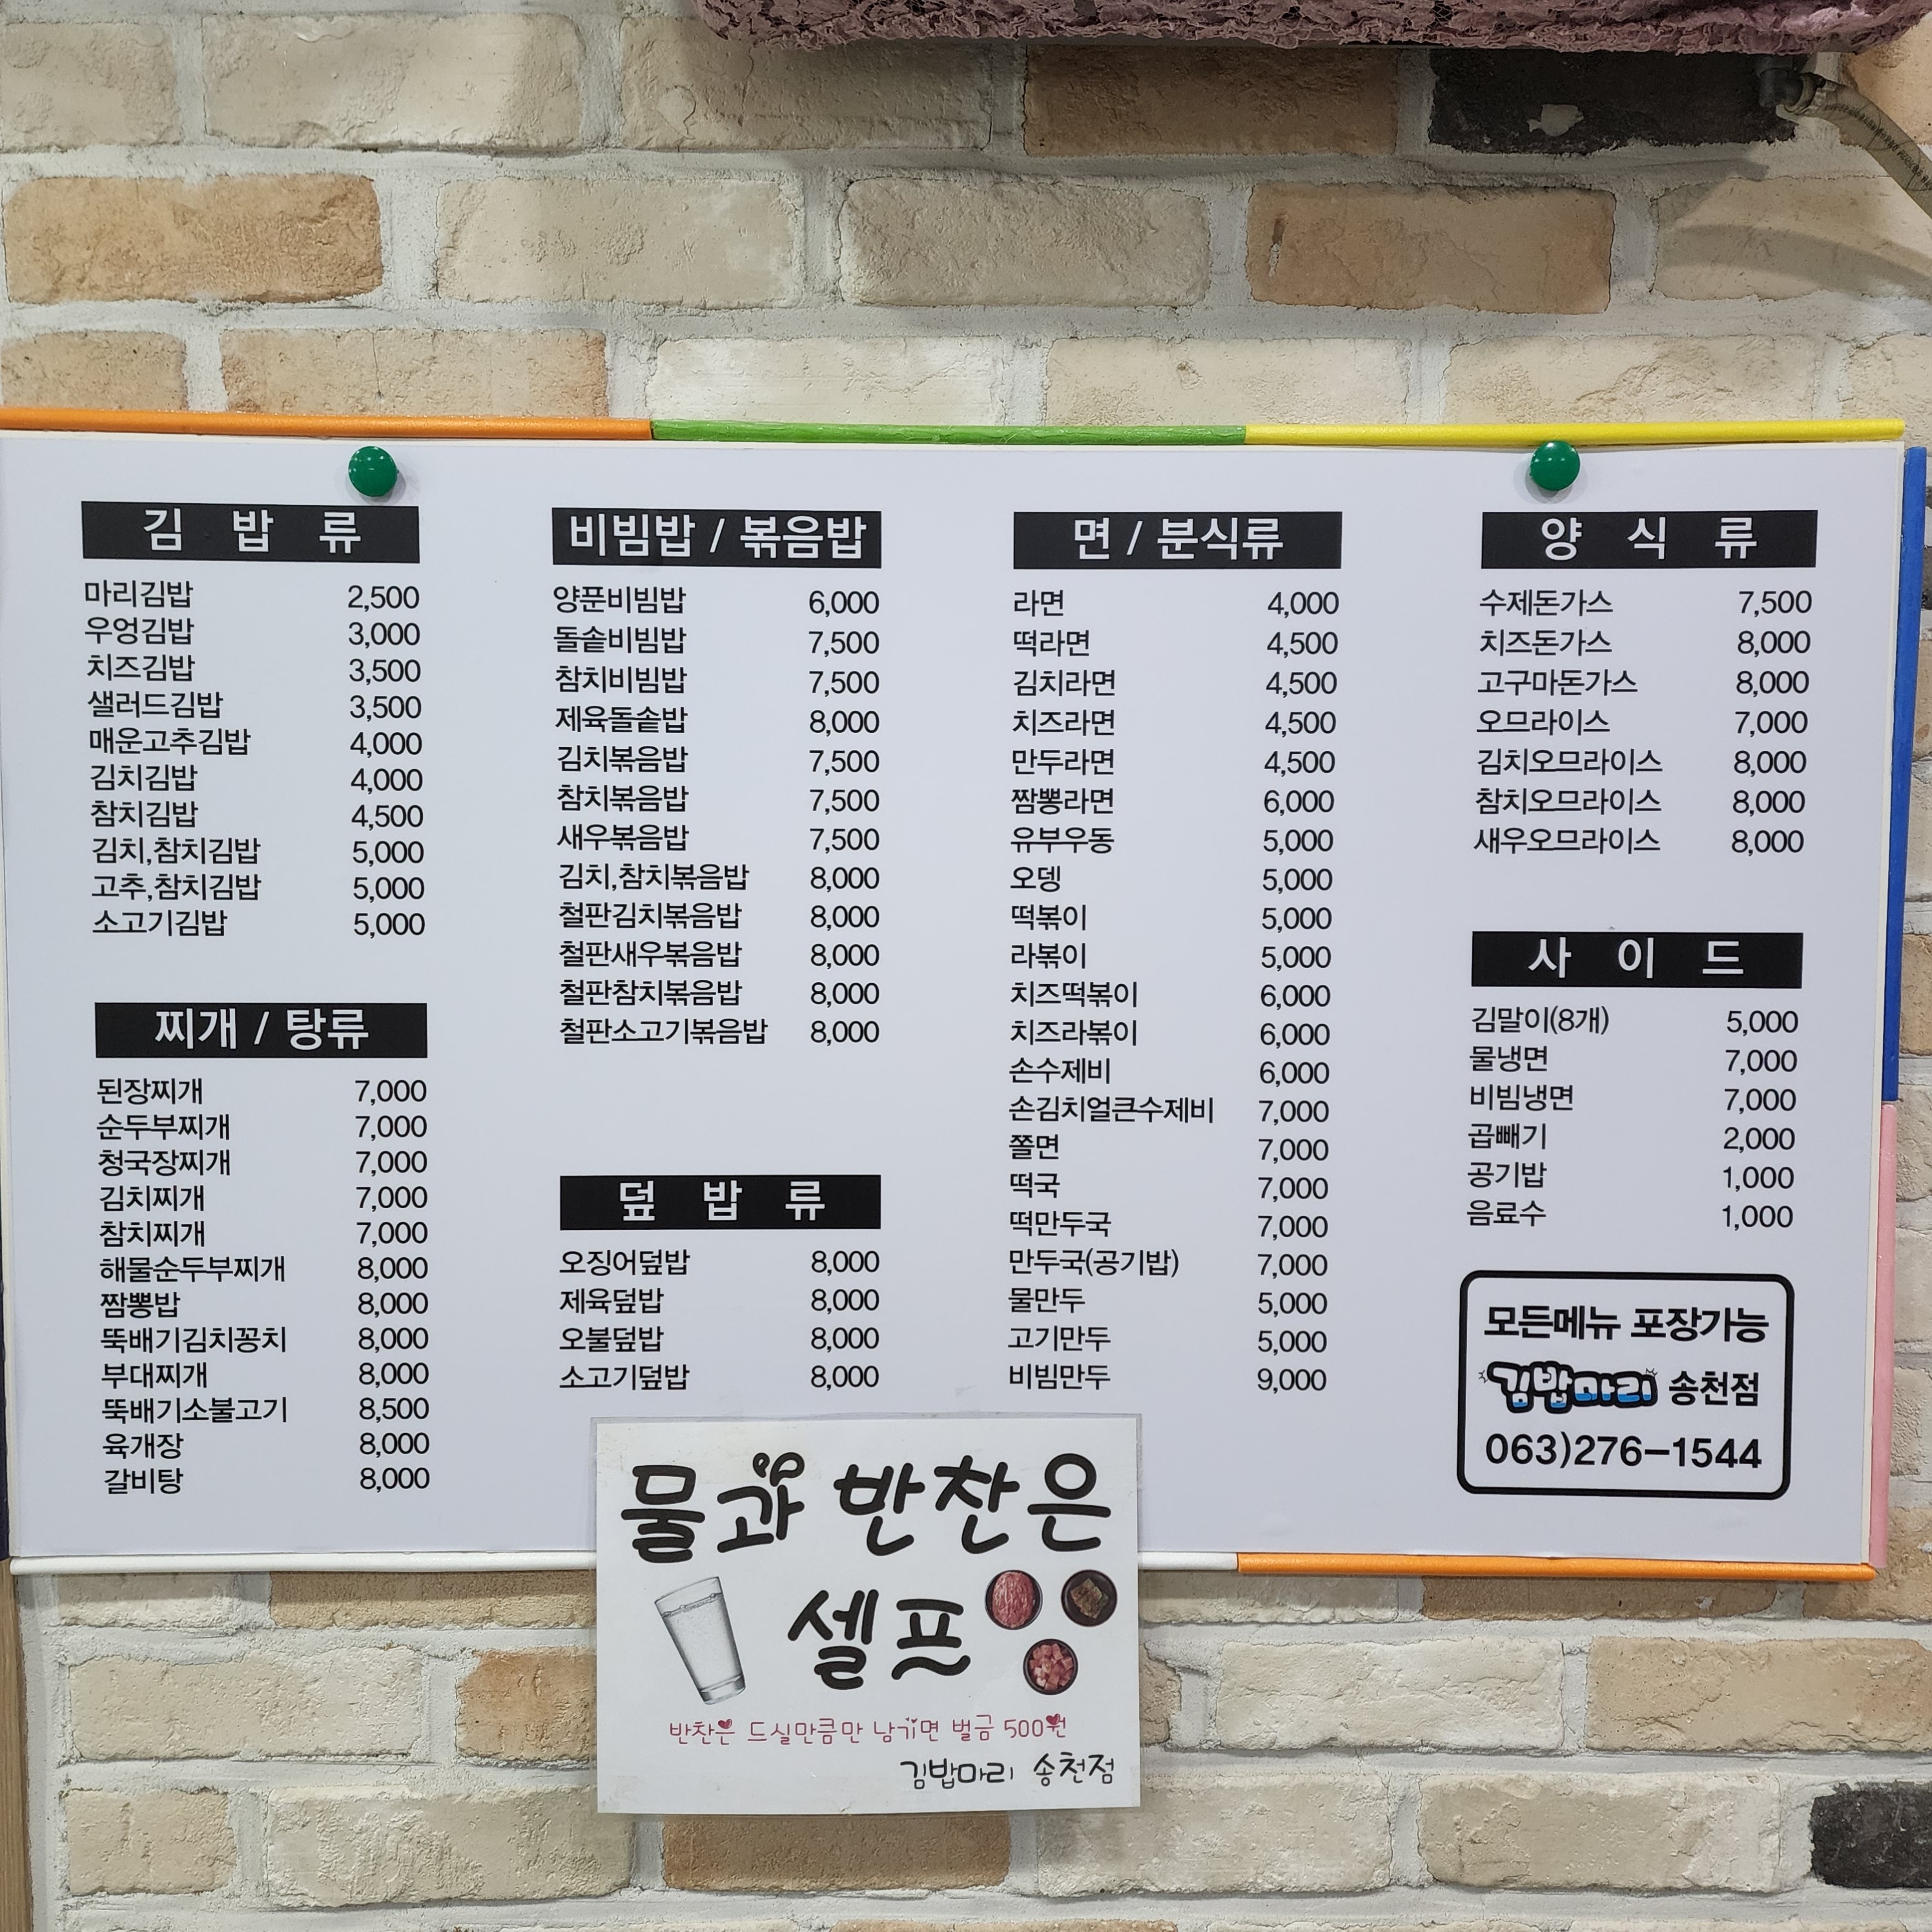 김 밥 류
마리김밥 2,500
우엉김밥 3,000
치즈김밥 3,500
샐러드김밥 3,500
매운고추김밥 4,000
김치김밥 4,000
참치김밥 4,500
김치,참치김밥 5,000
고추,참치김밥 5,000
소고기김밥 5,000
찌개 / 탕류
된장찌개 7,000
순두부찌개 7,000
청국장찌개 7,000
김치찌개 7,000
참치찌개 7,000
해물순두부찌개 8,000
짬뽕밥 8,000
뚝배기김치꽁치 8,000
부대찌개 8,000
뚝배기소불고기 8,500
육개장 8,000
갈비탕 8,000
비빔밥 / 볶음밥
양푼비빔밥 6,000
돌솥비빔밥 7,500
참치비빔밥 7,500
제육돌솥밥 8,000
김치볶음밥 7,500
참치볶음밥 7,500
새우볶음밥 7,500
김치,참치볶음밥 8,000
철판김치볶음밥 8,000
철판새우볶음밥 8,000
철판참치볶음밥 8,000
철판소고기볶음밥 8,000
덮 밥 류
오징어덮밥 8,000
제육덮밥 8,000
오불덮밥 8,000
소고기덮밥 8,000
면 / 분식류
라면 4,000
떡라면 4,500
김치라면 4,500
치즈라면 4,500
만두라면 4,500
짬뽕라면 6,000
유부우동 5,000
오뎅 5,000
떡볶이 5,000
라볶이 5,000
치즈떡볶이 6,000
치즈라볶이 6,000
손수제비 6,000
손김치얼큰수제비 7,000
쫄면 7,000
떡국 7,000
떡만두국 7,000
만두국(공기밥) 7,000
물만두 5,000
고기만두 5,000
비빔만두 9,000
양 식 류
수제돈가스 7,500
치즈돈가스 8,000
고구마돈가스 8,000
오므라이스 7,000
김치오므라이스 8,000
참치오므라이스 8,000
새우오므라이스 8,000
사 이 드
김말이(8개) 5,000
물냉면 7,000
비빔냉면 7,000
곱빼기 2,000
공기밥 1,000
음료수 1,000
모든메뉴 포장가능
김밥마리 송천점
063)276-1544
물과 반찬은
셀프
반찬은 드실만큼만 남기면 벌금 500원
김밥마리 송천점